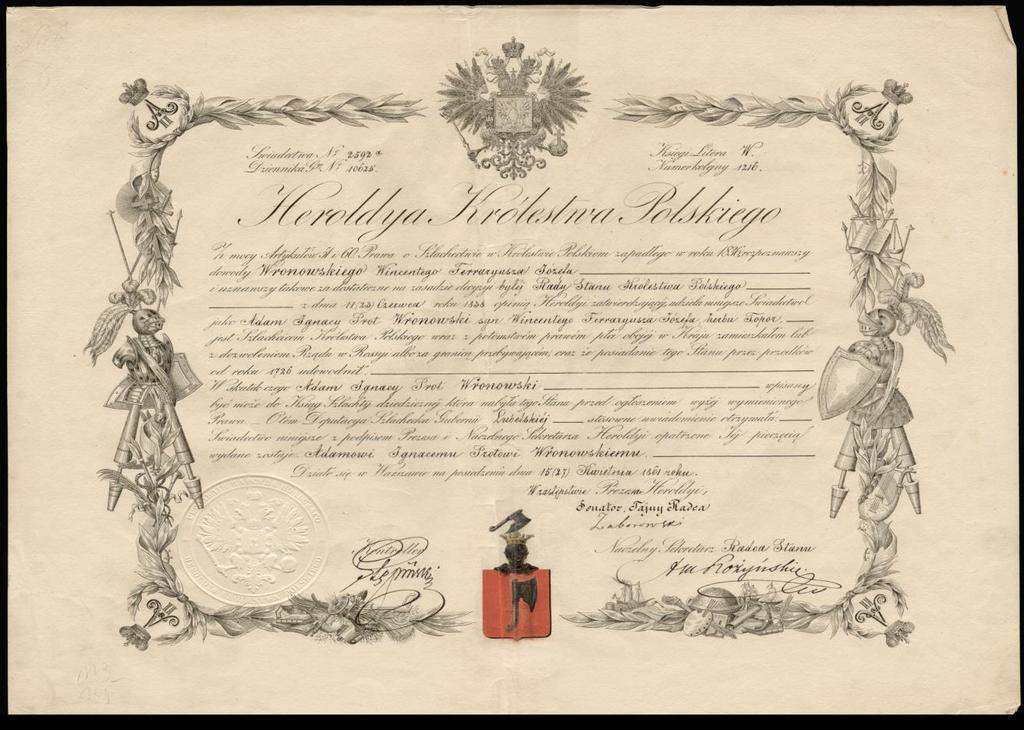 Świadectwa Nr 2592a
Dziennika Gł. Nr 10625.
Księgi Litera W.
Numer kolejny 1216.
Heroldya Królestwa Polskiego
Z mocy Artykułów i 60. Prawa o Szlachectwie w Królestwie Polskiem zapadłego w roku 1836, rozpoznawszy
dowody Wronowskiego Wincentego Ferraryusza Józefa
i uznawszy takowe za dostateczne na zasadzie decyzyi byłej Rady Stanu Królestwa Polskiego
z dnia 11 (23) Czerwca roku 1838 opinią Heroldyi zatwierdzającej, udziela niniejsze Świadectwo
jako Adam Ignacy Prot Wronowski syn Wincentego Ferraryusza Józefa, herbu Topór,
jest Szlachcicem Królestwa Polskiego wraz z potomstwem prawem płci obojej w Kraju zamieszkałem lub
z dozwoleniem Rządu w Rosyi albo za granicą przebywającem, oraz że posiadanie tego Stanu przez przodków
od roku 1726 udowodnił.
W skutek czego Adam Ignacy Prot Wronowski wpisany
być może do Ksiąg Szlachty dziedzicznej która nabyła tego Stanu przed ogłoszeniem wyżej wymienionego
Prawa. O tém Deputacya Szlachecka Gubernii Lubelskiej stosowne uwiadomienie otrzymała.
Świadectwo niniejsze z podpisem Prezesa i Naczelnego Sekretarza Heroldyi opatrzone Jej pieczęcią
wydane zostaje Adamowi Ignacemu Protowi Wronowskiemu.
Działo się w Warszawie na posiedzeniu dnia 15 (27) Kwietnia 1861 roku.
W zastępstwie Prezesa Heroldyi,
Senator, Tajny Radca
Zaborowski
Naczelny Sekretarz Radca Stanu
Rożyński
Kontroller
A II
A II